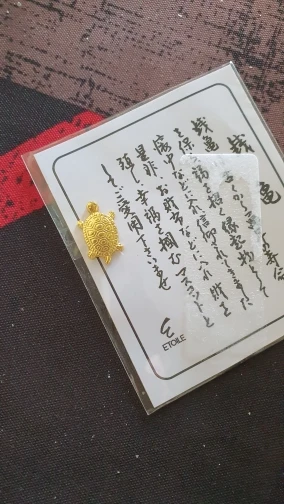 銭亀
銭亀 くから 寿命
を保 福を招く縁起物として
懐中などに入れ信仰されてきました
是非お財布などに入れ
幸福を掴むマスコットと
してご愛用下さいませ
ETOILE